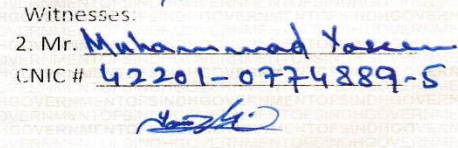 Witnesses:
2. Mr. Muhammad Yaseen
CNIC # 42201-0774889-5